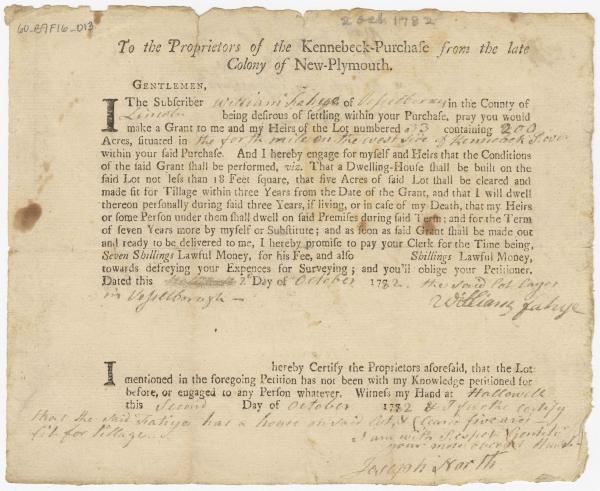 60_E9F16_D13
2 Oct 1782
To the Proprietors of the Kennebeck-Purchase from the late
Colony of New-Plymouth.
GENTLEMEN,
I The Subscriber William Fahye of Vesselborow in the County of
Lincoln being desirous of settling within your Purchase, pray you would
make a Grant to me and my Heirs of the Lot numbered 33 containing 200
Acres, situated in the forth mile on the west side of Kennebeck River
within your said Purchase. And I hereby engage for myself and Heirs that the Conditions
of the said Grant shall be performed, viz. That a Dwelling-House shall be built on the
said Lot not less than 18 Feet square, that five Acres of said Lot shall be cleared and
made fit for Tillage within three Years from the Date of the Grant, and that I will dwell
thereon personally during said three Years, if living, or in case of my Death, that my Heirs
or some Person under them shall dwell on said Premises during said Term; and for the Term
of seven Years more by myself or Substitute; and as soon as said Grant shall be made out
and ready to be delivered to me, I hereby promise to pay your Clerk for the Time being,
Seven Shillings Lawful Money, for his Fee, and also Shillings Lawful Money,
towards defreying your Expences for Surveying; and you'll oblige your Petitioner.
Dated this 2 Day of October 1782. the said Lot Layes
in Vesselborough
William Fahye
I hereby Certify the Proprietors aforesaid, that the Lot
mentioned in the foregoing Petition has not been with my Knowledge petitioned for
before, or engaged to any Person whatever. Witness my Hand at Hallowell
this Second Day of October 1782 & I further Certify
that the said Fahye has a house on said Lot, & Clear'd five acres
fit for Tillage
I am with Respect Gentle
your most
Joseph North